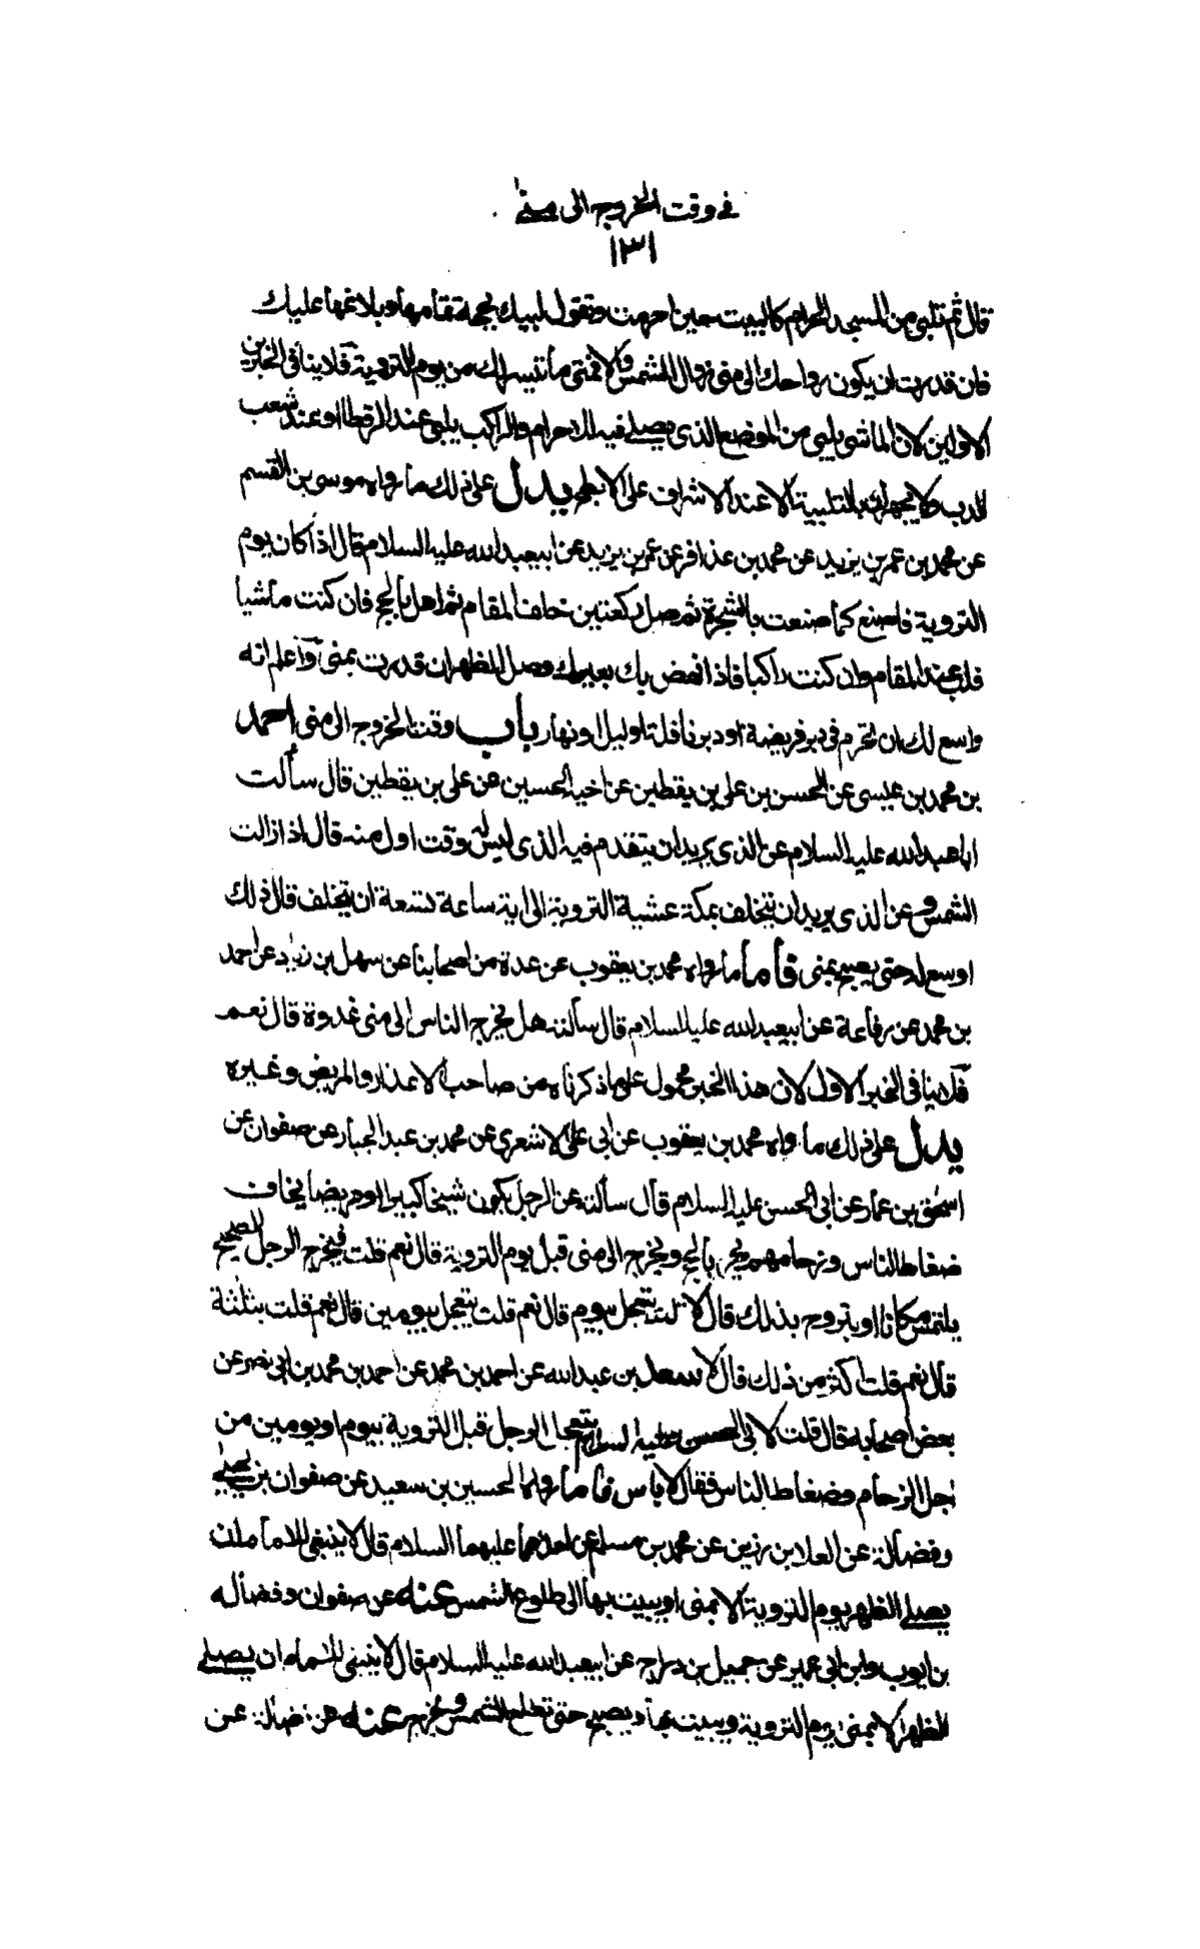 في وقت الخروج الى منىٰ
١٣١
قال ثم تلبي من المسجد الحرام كما لبيت حين احرمت وتقول لبيك بحجة تمامها وبلاغها عليك
فان قدرت ان يكون رواحك الى منى زوال الشمس والا فمتى ما تيسر لك من يوم التروية فلا ينافي الخبرين
الاولين لان الماشي يلبي من الموضع الذي يصلي فيه للاحرام والراكب يلبي عند الرقطا او عند شعب
الدب ولا يجهران بالتلبية الا عند الاشراف على الابطح يدل على ذلك ما رواه موسى بن القسم
عن محمد بن عمر بن يزيد عن محمد بن عذافر عن عمر بن يزيد عن ابيعبد الله عليه السلام قال اذا كان يوم
التروية فاصنع كما صنعت بالشجرة ثم صل ركعتين خلف المقام ثم اهل بالحج فان كنت ماشيا
فلب عند المقام وان كنت راكبا فاذا نهض بك بعيرك وصل الظهر ان قدرت بمنى واعلم انه
واسع لك ان تحرم في دبر فريضة او دبر نافلة او ليل او نهار باب وقت الخروج الى منى احمد
بن محمد بن عيسى عن الحسن بن علي بن يقطين عن اخيه الحسين عن علي بن يقطين قال سألت
ابا عبد الله عليه السلام عن الذي يريد ان يتقدم فيه الذي ليس له وقت اول منه قال اذا زالت
الشمس وعن الذي يريد ان يتخلف بمكة عشية التروية الى اية ساعة تسعة ان يتخلف قال ذلك
اوسع له حتى يصبح بمنى فأما ما رواه محمد بن يعقوب عن عدة من اصحابنا عن سهل بن زياد عن احمد
بن محمد عن رفاعة عن ابيعبد الله عليه السلام قال سألته هل يخرج الناس الى منى غدوة قال نعم
فلا ينافي الخبر الاول لان هذا الخبر محمول على ما ذكرناه من صاحب الاعذار والمريض وغيره
يدل على ذلك ما رواه محمد بن يعقوب عن ابي علي الاشعري عن محمد بن عبد الجبار عن صفوان عن
اسحٰق بن عمار عن ابي الحسن عليه السلام قال سألته عن الرجل يكون شيخا كبيرا او مريضا يخاف
ضغاط الناس وزحامهم يحرم بالحج ويخرج الى منى قبل يوم التروية قال نعم قلت فيخرج الرجل الصحيح
يلتمس مكانا او يتروح بذلك قال لا قلت يتعجل بيوم قال نعم قلت يتعجل بيومين قال نعم قلت بثلثة
قال نعم قلت اكثر من ذلك قال لا سعد بن عبد الله عن احمد بن محمد عن احمد بن محمد بن ابي نصر عن
بعض اصحابه قال قلت لابي الحسن عليه السلام يتعجل الرجل قبل التروية بيوم او يومين من
اجل الزحام وضغاط الناس فقال لا بأس فأما ما رواه الحسين بن سعيد عن صفوان بن يحيى
وفضالة عن العلا بن رزين عن محمد بن مسلم عن احدهما عليهما السلام قال لا ينبغي للامام ان
يصلي الظهر يوم التروية الا بمنى او يبيت بها الى طلوع الشمس عنه عن صفوان وفضاله
بن ايوب وابن ابي عمير عن جميل بن دراج عن ابيعبد الله عليه السلام قال لا ينبغي للامام ان يصلي
الظهر الا بمنى يوم التروية ويبيت بها ويصبح حتى تطلع الشمس ويخرج عنه عن فضالة عن